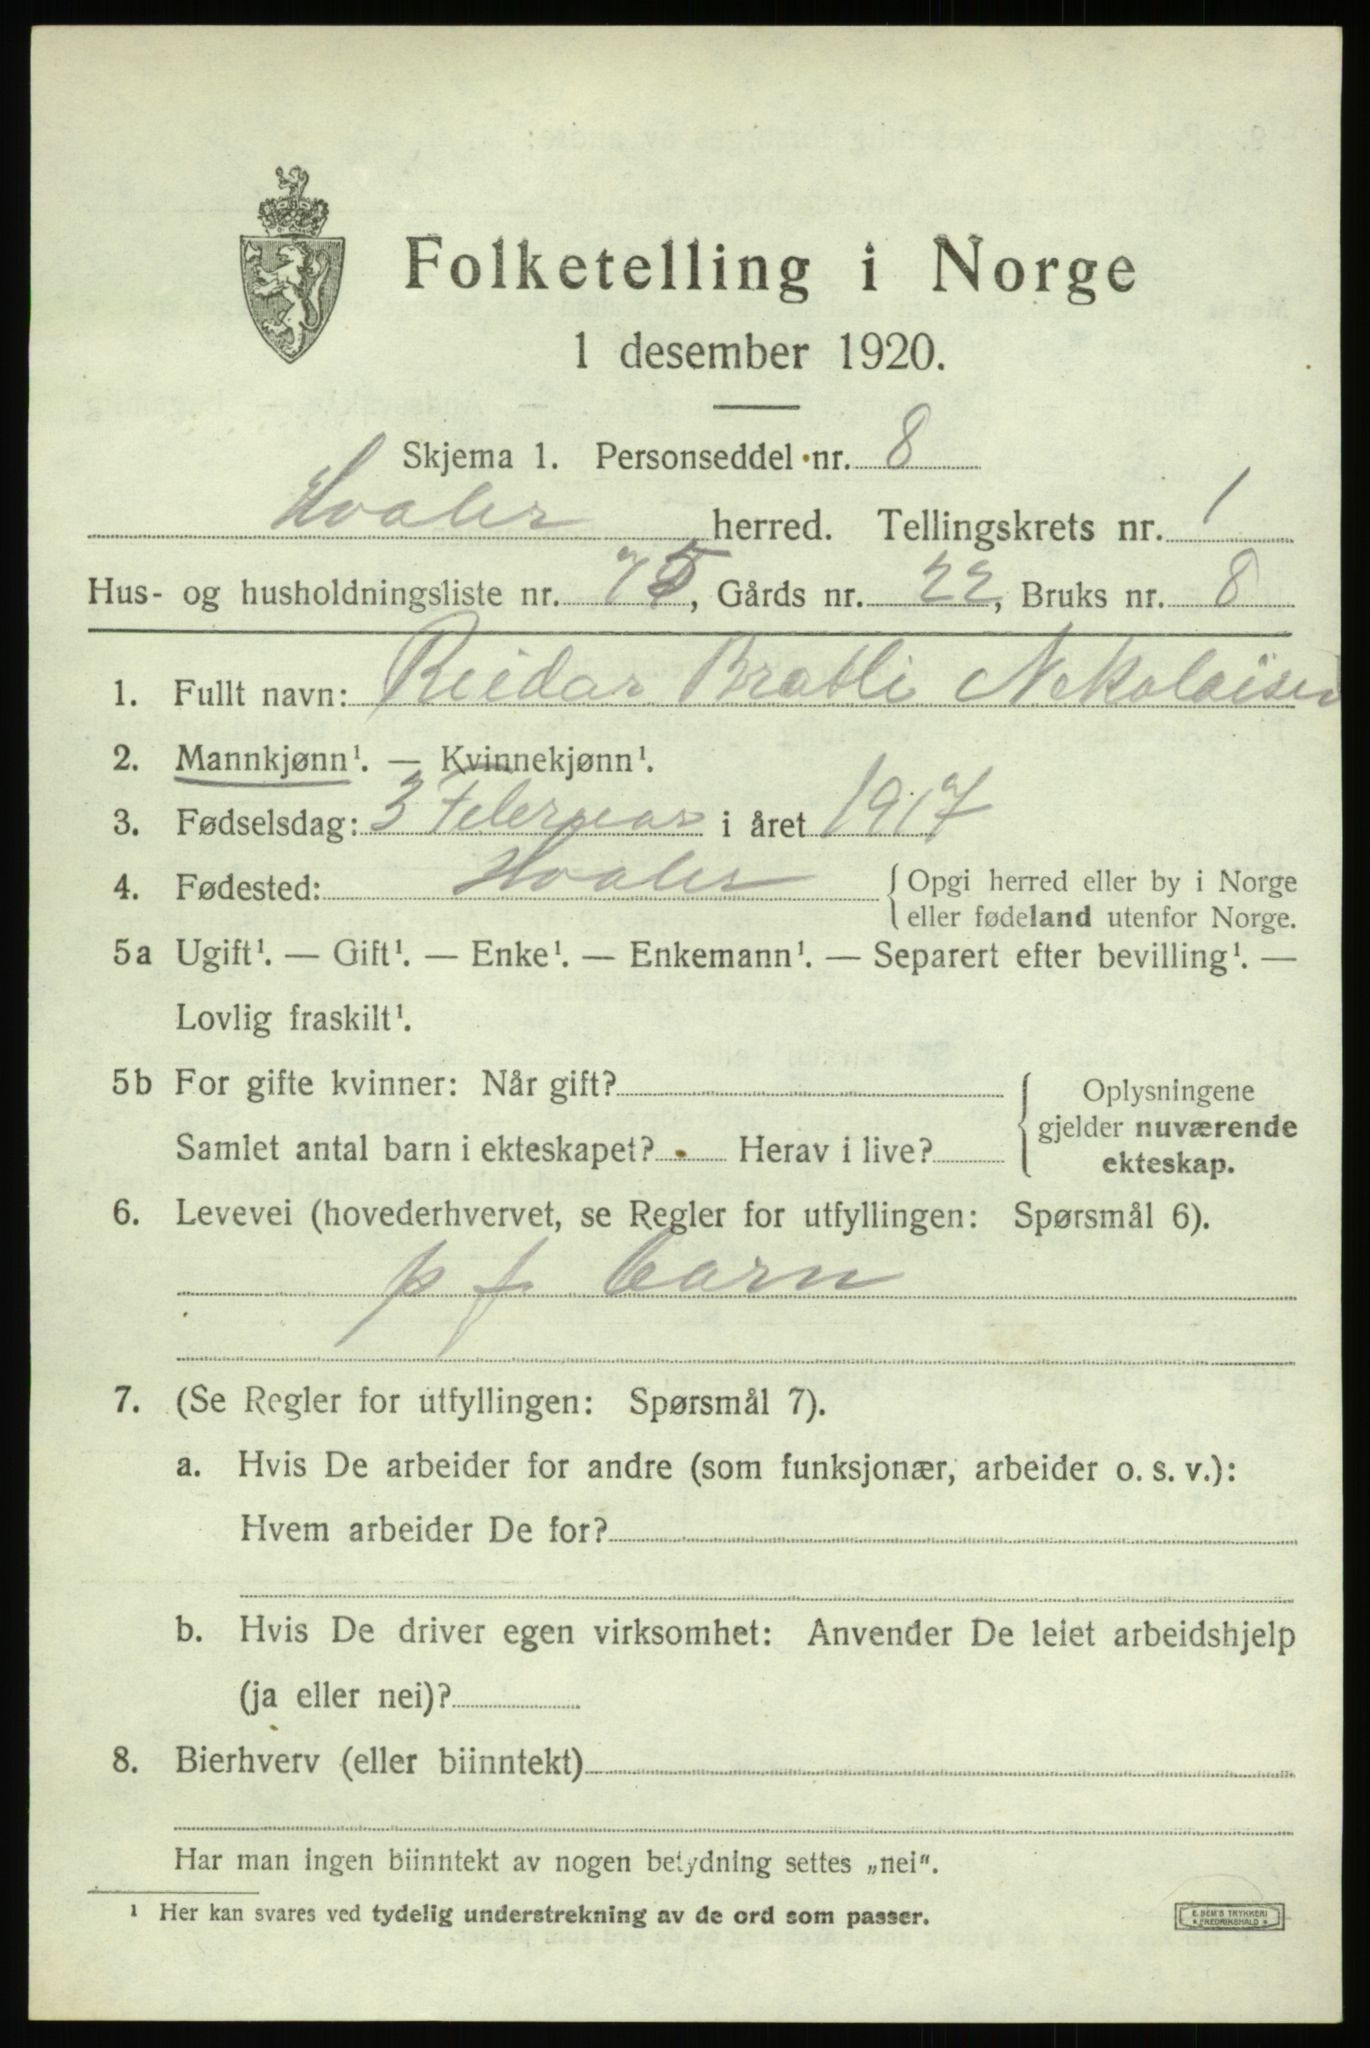 Folketelling i Norge
1 desember 1920.
Skjema 1. Personseddel nr. 8
Hvaler herred. Tellingskrets nr. 1
Hus- og husholdningsliste nr. 75, Gårds nr. 22, Bruks nr. 8
1. Fullt navn: Reidar Bratli Nekolaisen
2. Mannkjønn¹. — Kvinnekjønn¹.
3. Fødselsdag: 3 Februar i året 1917
4. Fødested: Hvaler { Opgi herred eller by i Norge
eller fødeland utenfor Norge.
5a Ugift¹. — Gift¹. — Enke¹. — Enkemann¹. — Separert efter bevilling¹. —
Lovlig fraskilt¹.
5b For gifte kvinner: Når gift? { Oplysningene
gjelder nuværende
ekteskap.
Samlet antal barn i ekteskapet? Herav i live?
6. Levevei (hovederhvervet, se Regler for utfyllingen: Spørsmål 6).
p f barn
7. (Se Regler for utfyllingen: Spørsmål 7).
a. Hvis De arbeider for andre (som funksjonær, arbeider o. s. v.):
Hvem arbeider De for?
b. Hvis De driver egen virksomhet: Anvender De leiet arbeidshjelp
(ja eller nei)?
8. Bierhverv (eller biinntekt)
Har man ingen biinntekt av nogen betydning settes „nei".
¹ Her kan svares ved tydelig understrekning av de ord som passer.
E. SEM'S TRYKKERI
FREDRIKSHALD